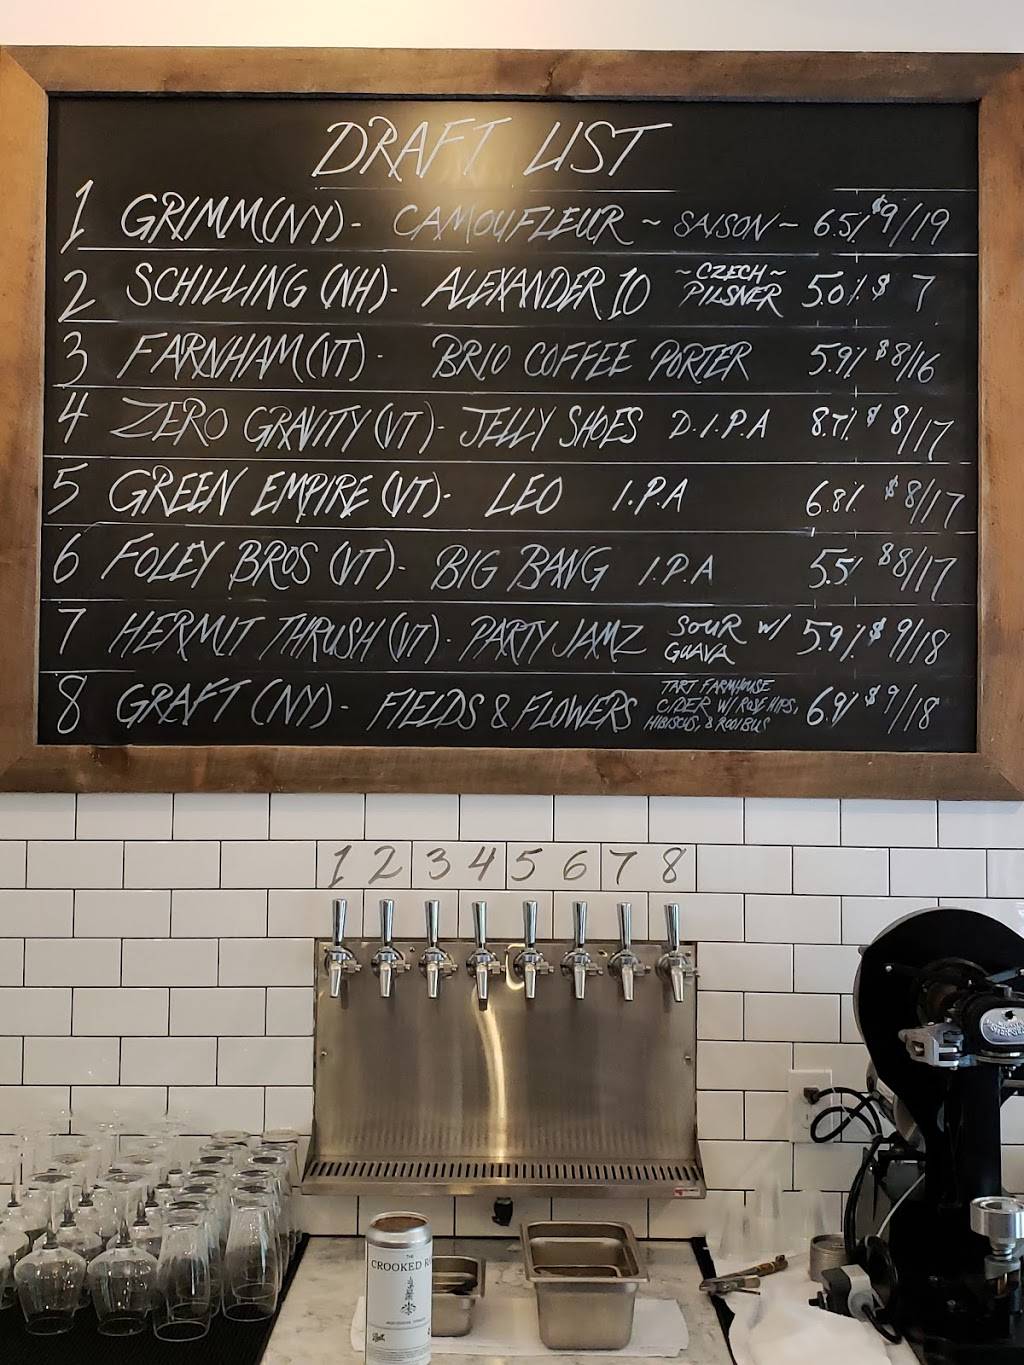 DRAFT LIST
1 GRIMM (NY) - CAMOUFLEUR ~ SAISON ~ 6.5% $9/19
2 SCHILLING (NH) - ALEXANDER 10 ~CZECH~ PILSNER 5.0% $ 7
3 FARNHAM (VT) - BRIO COFFEE PORTER 5.9% $8/16
4 ZERO GRAVITY (VT) - JELLY SHOES D.I.P.A 8.7% $8/17
5 GREEN EMPIRE (VT) - LEO I.P.A 6.8% $8/17
6 FOLEY BROS (VT) - BIG BANG I.P.A 5.5% $8/17
7 HERMIT THRUSH (VT) - PARTY JAMZ SOUR W/ GUAVA 5.9% $9/18
8 GRAFT (NY) - FIELDS & FLOWERS TART FARMHOUSE CIDER W/ ROSE HIPS, HIBISCUS, & ROOIBUS 6.9% $9/18
1 2 3 4 5 6 7 8
THE
CROOKED